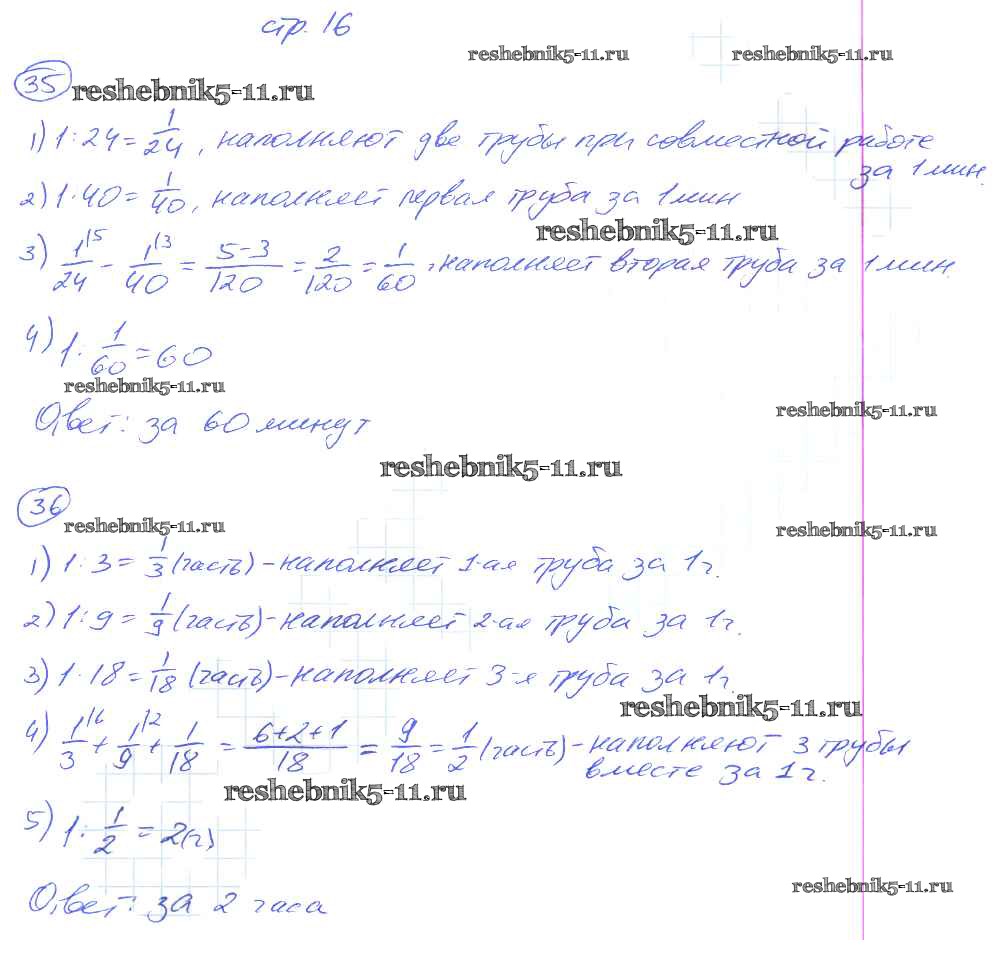 стр. 16
reshebnik5-11.ru reshebnik5-11.ru
35 reshebnik5-11.ru
1) 1:24 = 1/24, наполняют две трубы при совместной работе
за 1 мин.
2) 1:40 = 1/40, наполняет первая труба за 1 мин
reshebnik5-11.ru
3) 1/24 \5 - 1/40 \3 = (5-3)/120 = 2/120 = 1/60, наполняет вторая труба за 1 мин.
4) 1: 1/60 = 60
reshebnik5-11.ru
reshebnik5-11.ru
Ответ: за 60 минут
reshebnik5-11.ru
36
reshebnik5-11.ru
reshebnik5-11.ru
1) 1:3 = 1/3 (часть) - наполняет 1-ая труба за 1 ч.
2) 1:9 = 1/9 (часть) - наполняет 2-ая труба за 1 ч.
3) 1:18 = 1/18 (часть) - наполняет 3-я труба за 1 ч
reshebnik5-11.ru
4) 1/3 \6 + 1/9 \2 + 1/18 = (6+2+1)/18 = 9/18 = 1/2 (часть) - наполняют 3 трубы
вместе за 1 ч.
reshebnik5-11.ru
5) 1: 1/2 = 2 (ч)
reshebnik5-11.ru
Ответ: за 2 часа